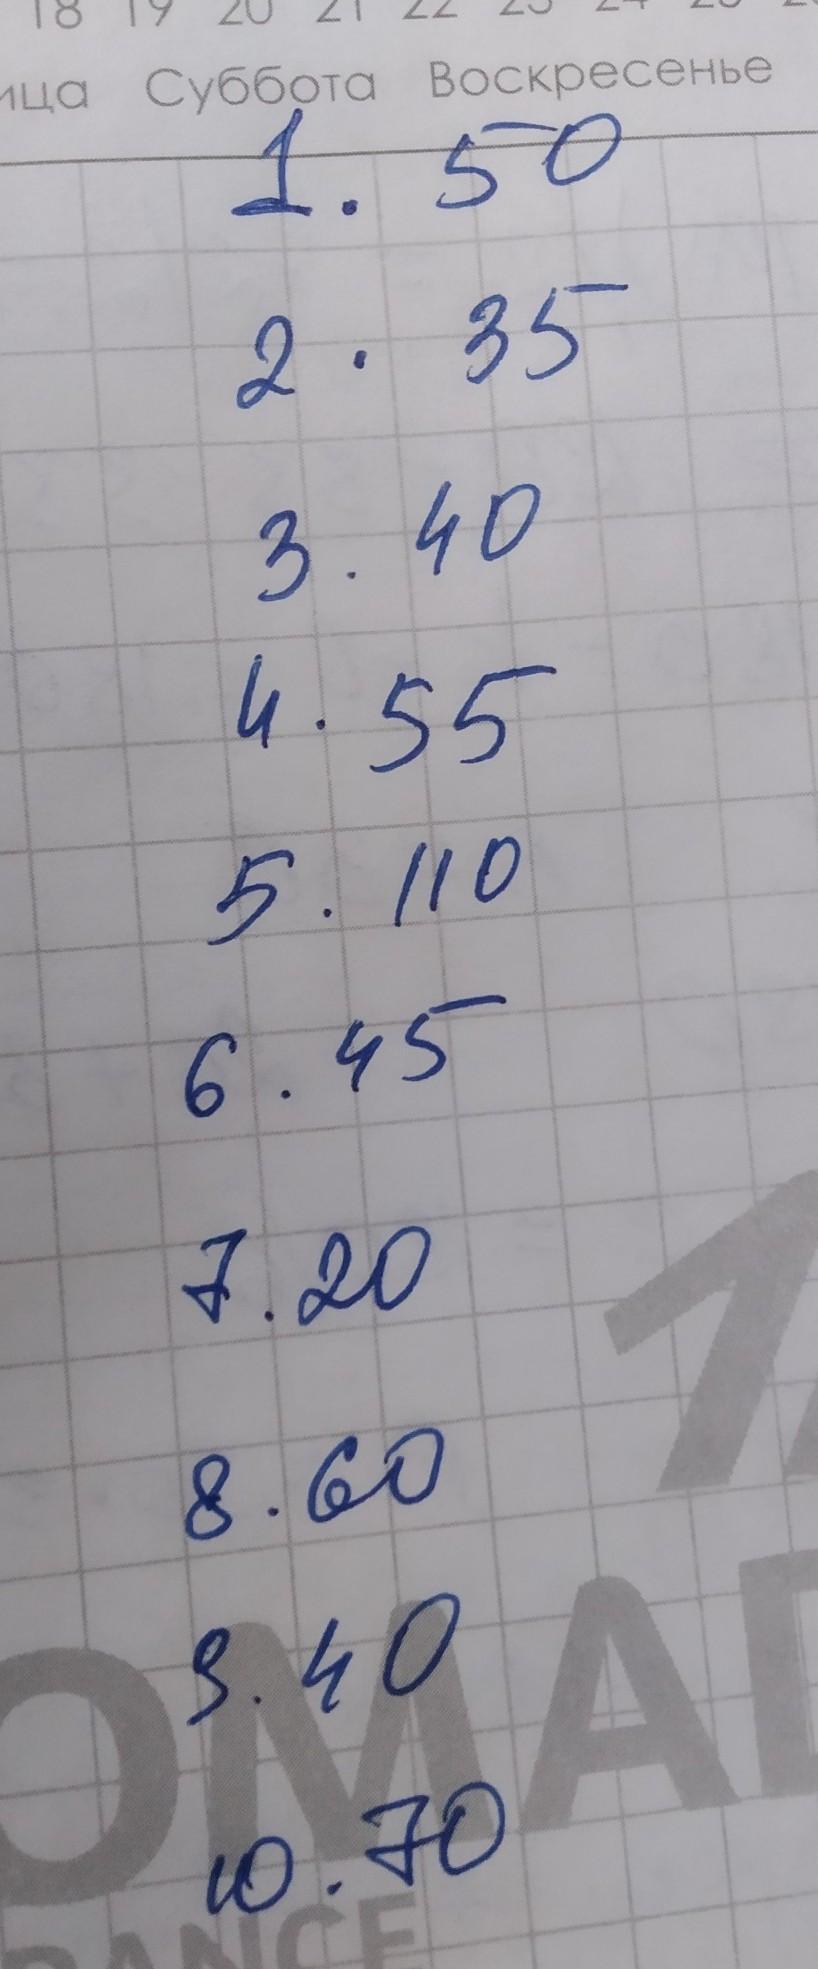 18 19 20 21 22 23 24 25
ица Суббота Воскресенье
1. 50
2. 35
3. 40
4. 55
5. 110
6. 45
7. 20
8. 60
9. 40
10. 70